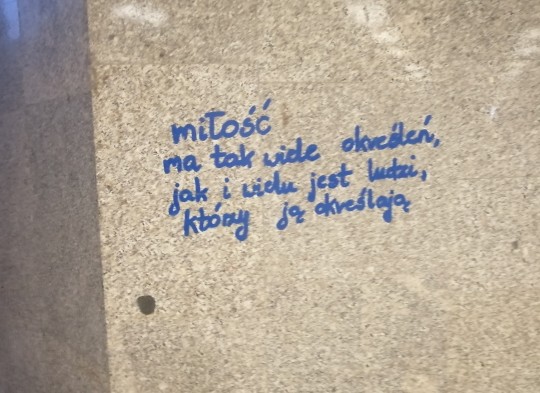 miłość
ma tak wiele określeń,
jak i wielu jest ludzi,
którzy ją określają